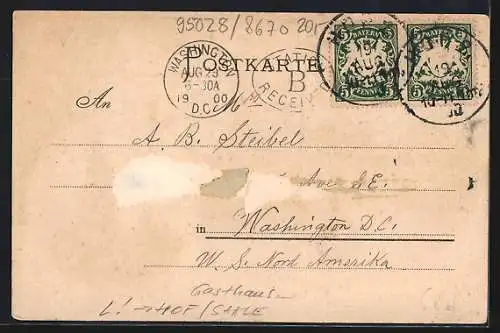 95028/8670 20.-
WASHINGTON
AUG 29
6-30A
19 00
D.C.
POSTKARTE
STATION
B
RECEIVED
BAYERN
5 5
PFENNIG
BAYERN
5 5
PFENNIG
An A. B. Steibel
Ave S.E.
in Washington D.C.
W. S. Nord Amerika
Gasthaus
L! → HOF/SAALE